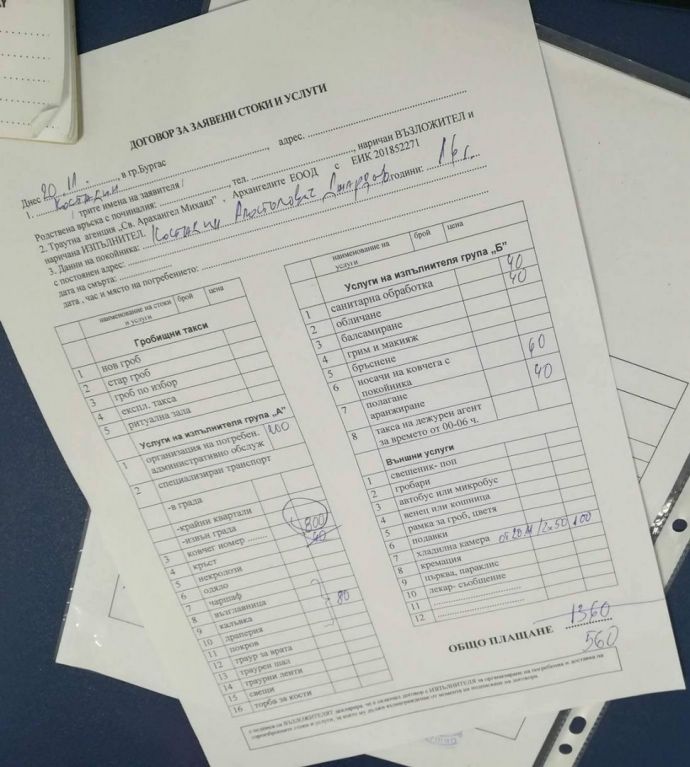 ДОГОВОР ЗА ЗАЯВЕНИ СТОКИ И УСЛУГИ
Днес 20.11. , в гр.Бургас , адрес.
1. Костадин
/ трите имена на заявителя / , тел. , наричан ВЪЗЛОЖИТЕЛ и
Родствена връска с починалия:
2. Траутна агенция „Св. Арахангел Михаил" - Архангелите ЕООД с ЕИК 201852271
наричана ИЗПЪЛНИТЕЛ.
3. Данни на покойника: Костадин Апостолович години: 16 г.
с постоянен адрес:
дата на смърта:
дата , час и място на погребението:
наименование на стоки и услуги брой цена
Гробищни такси
1 нов гроб
2 стар гроб
3 гроб по избор
4 експл. такса
5 ритуална зала
Услуги на изпълнителя група „А"
1 организация на погребен. административно обслуж 200
2 специализиран транспорт
-в града
-крайни квартали
-извън града
3 ковчег номер ........ 800
4 кръст 40
5 некролози
6 одяло
7 чаршаф
8 възглавница 80
9 калъвка
10 драперия
11 покров
12 траур за врата
13 траурен шал
14 траурни ленти
15 свещи
16 торба за кости
наименование на услуги брой цена
Услуги на изпълнителя група „Б"
1 санитарна обработка 40
2 обличане 40
3 балсамиране
4 грим и макияж
5 бръснене
6 носачи на ковчега с покойника 60
7 полагане аранжиране 40
8 такса на дежурен агент за времето от 00-06 ч.
Външни услуги
1 свещеник- поп
2 гробари
3 автобус или микробус
4 венец или кошница
5 рамка за гроб, цветя
6 подавки
7 хладилна камера от 20.11 / 2x50 100
8 кремация
9 църква, параклис
10 лекар- съобщение
11
12
ОБЩО ПЛАЩАНЕ 1360
560
с подписа си ВЪЗЛОЖИТЕЛЯТ декларира, че е сключил договор с ИЗПЪЛНИТЕЛЯ за организиране на погребения и доставка на
гореизброените стоки и услуги, за които му дължи възнаграждение от момента на подписване на договора.